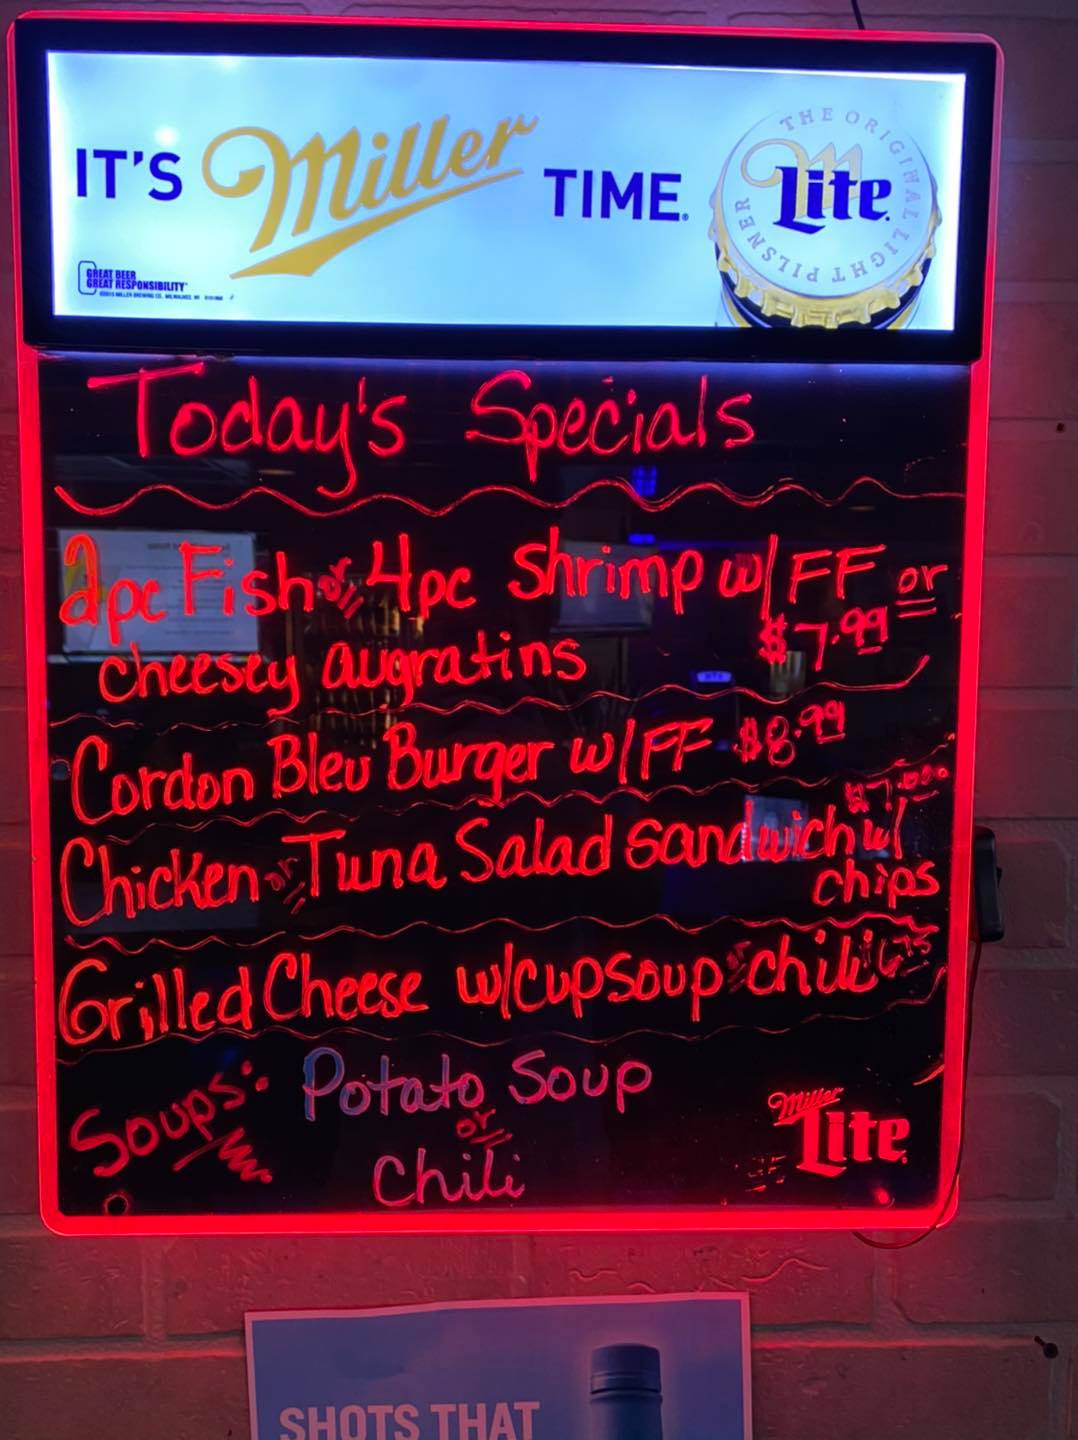 IT'S Miller TIME.
THE ORIGINAL LIGHT PILSNER
Lite
GREAT BEER
GREAT RESPONSIBILITY
Today's Specials
2pc Fish or 4pc Shrimp w/ FF or
cheesey augratins $7.99
Cordon Bleu Burger w/ FF $8.99
$7.00
Chicken or Tuna Salad Sandwich w/
chips
Grilled Cheese w/cup soup or chili
Soups: Potato Soup
or
Chili
Miller
Lite
SHOTS THAT